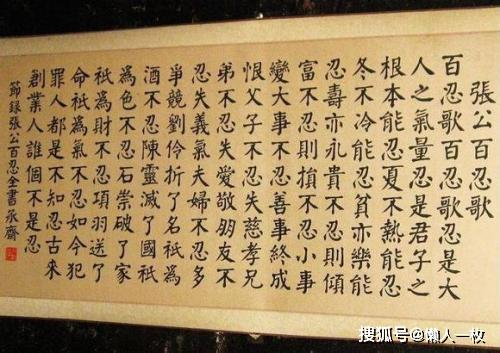 張公百忍歌
百忍歌百忍歌忍是大
人之氣量忍是君子之
根本能忍夏不熱能忍
冬不冷能忍貧亦樂能
忍壽亦永貴不忍則傾
富不忍則損不忍小事
變大事不忍善事終成
恨父子不忍失慈孝兄
弟不忍失愛敬朋友不
忍失義氣夫婦不忍多
爭競劉伶折了名祇為
酒不忍陳靈滅了國祇
為色不忍石崇破了家
祇為財不忍項羽送了
命祇為氣不忍如今犯
罪人都是不知忍古來
創業人誰個不是忍
節錄張公百忍全書承齋
搜狐号@懶人一枚